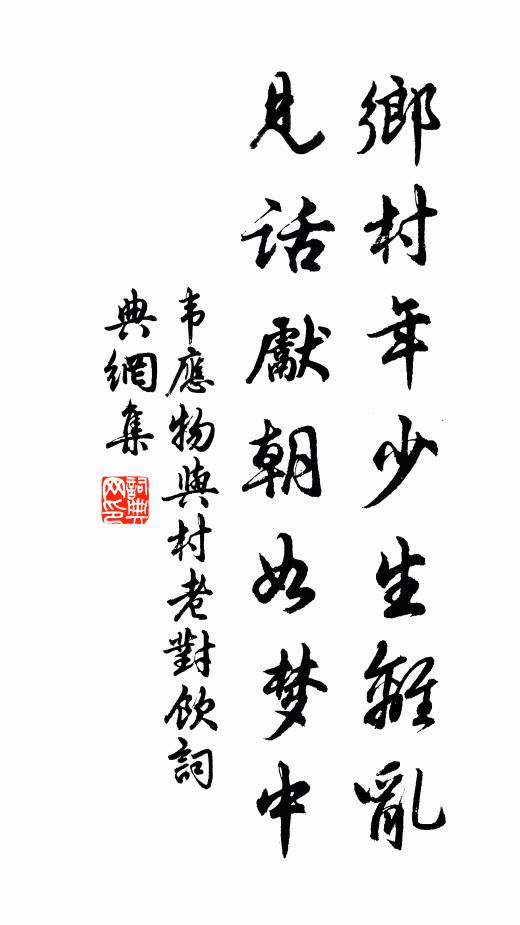 鄉村年少生離亂
見話獻朝如梦中
韦應物與村老對飲詞
典網集
詞典网印